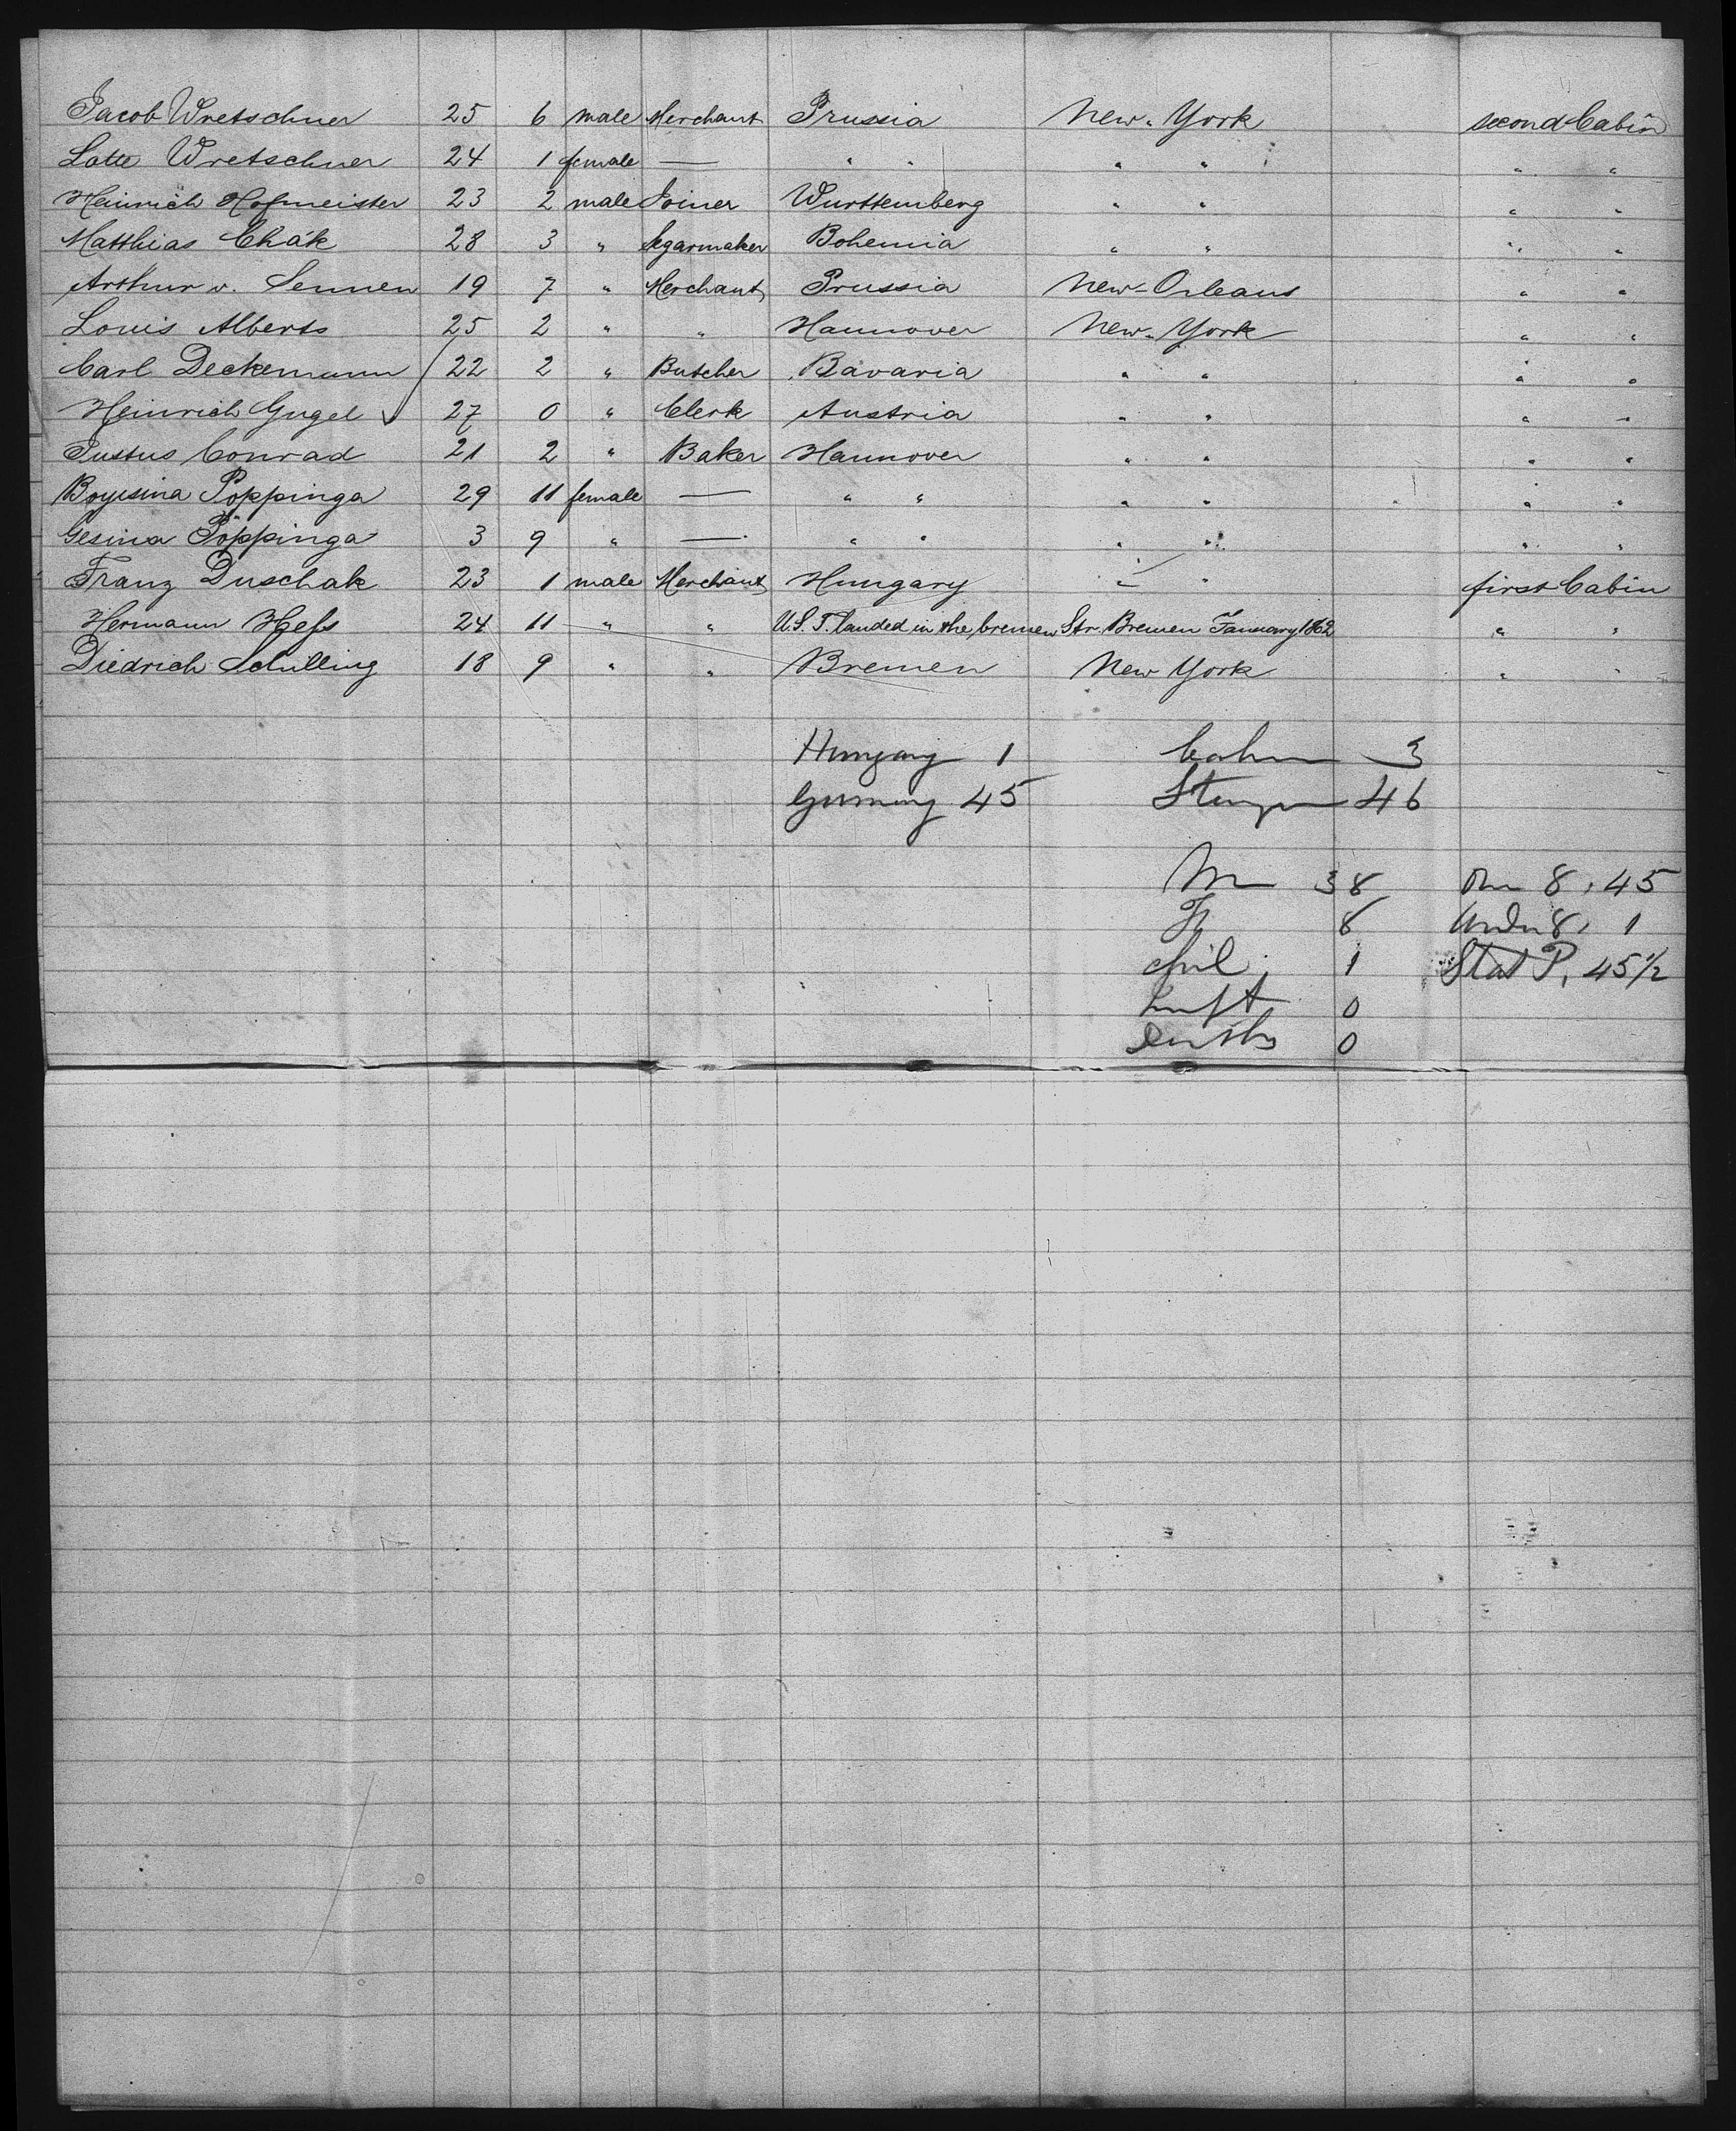 Jacob Wretschner 25 6 male Merchant Prussia New-York second Cabin
Lotte Wretschner 24 1 female — " " " " " "
Heinrich Hofmeister 23 2 male Joiner Wurttemberg " " " "
Matthias Chák 28 3 " Segarmaker Bohemia " " " "
Arthur v. Sennen 19 7 " Merchant Prussia New-Orleans " "
Louis Alberts 25 2 " " Hannover New-York " "
Carl Deckemann 22 2 " Butcher Bavaria " " " "
Heinrich Gugel 27 0 " Clerk Austria " " " "
Justus Conrad 21 2 " Baker Hannover " " " "
Poppinga 29 11 female — " " " " " "
Gesina Poppinga 3 9 " — " " " " " "
Franz Duschak 23 1 male Merchant Hungary " " first Cabin
Hermann Hess 24 11 " " U.S. landed in the bremen Str. Bremen January 1862 " "
Diedrich Schilling 18 9 " " Bremen New York " "
Hungary 1 Cabin 3
Germany 45 46
M 38 8, 45
F 8 Under 8, 1
chil. 1 P, 45 1/2
0
Deaths 0